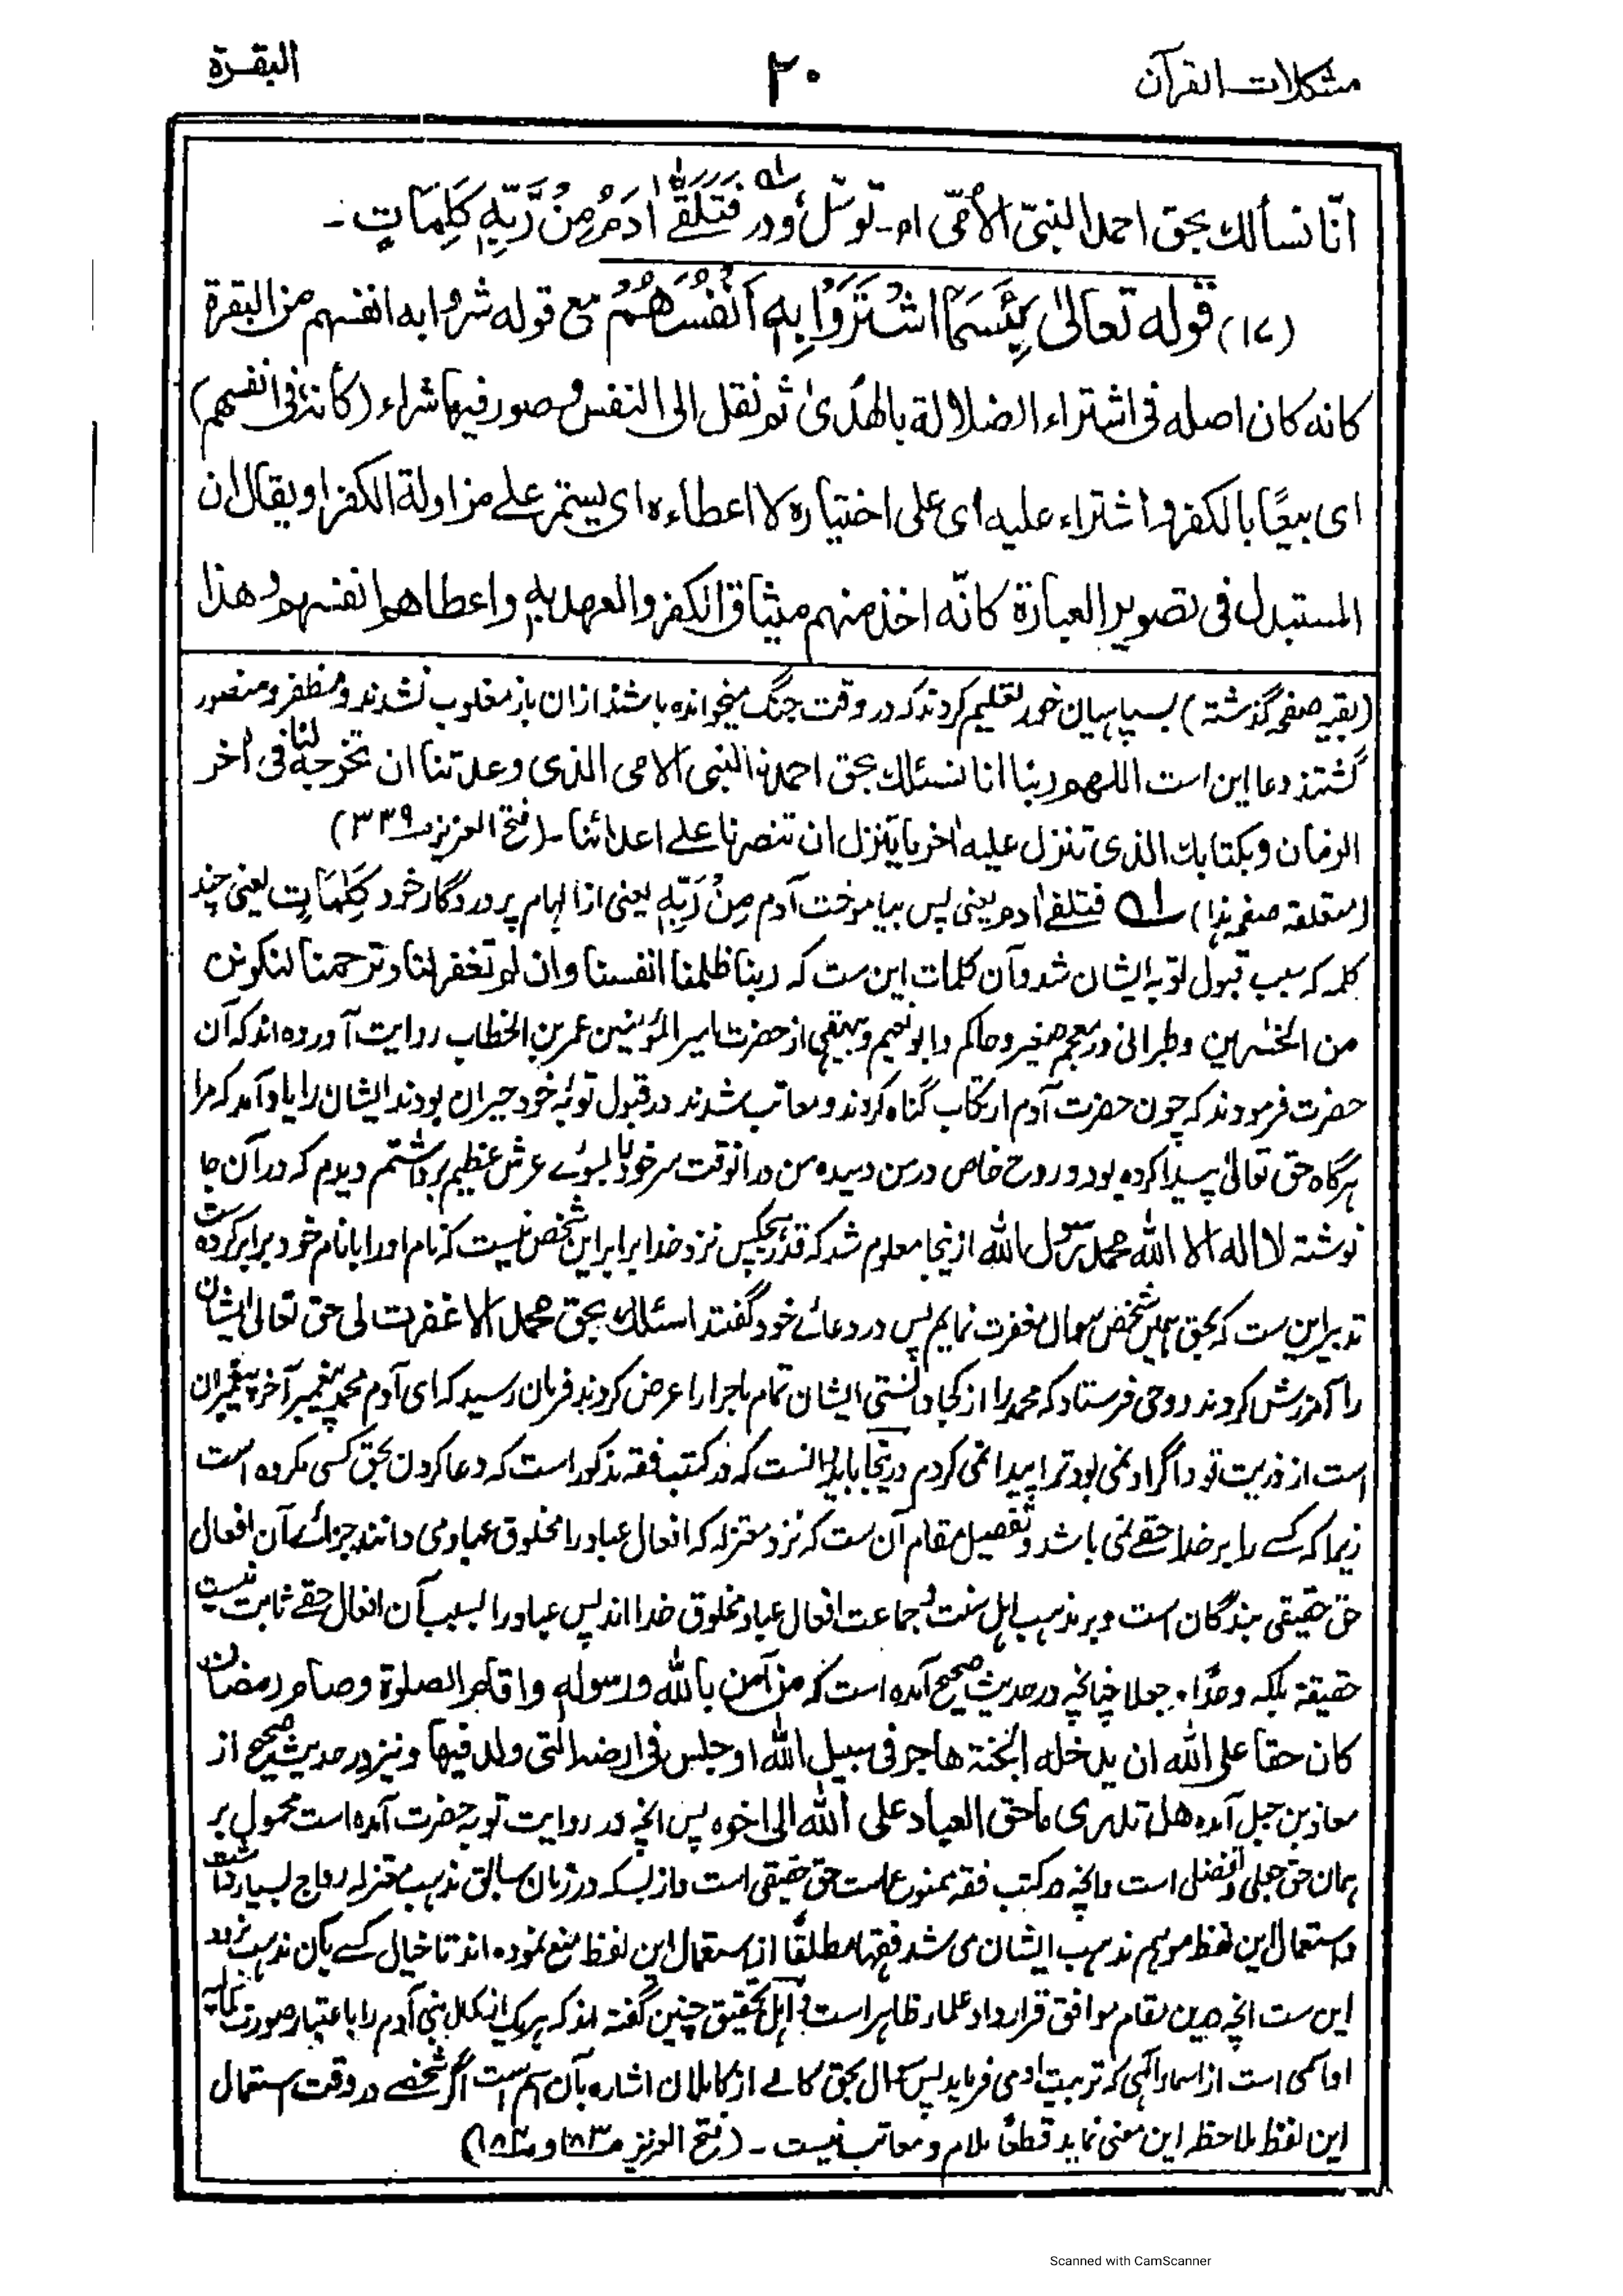 مشکلات القرآن
۲۰
البقرة
انّا نسألك بحق احمد النبیّ الأمّی اھ۔ توسّل، ودر فَتَلَقّٰۤى اٰدَمُ مِنْ رَّبِّهٖ كَلِمَاتٍ ۔
(۱۷) قوله تعالىٰ بِئْسَمَا اشْتَرَوْا بِهٖ اَنْفُسَهُمْ مع قوله شروا به انفسهم من البقرة
كانه كان اصله فى اشتراء الضلالة بالهدىٰ ثم نقل الى النفس وصور فيها شراء (كائنة فى انفسهم)
اى بيعًا بالكفر واشتراء عليه اى على اختياره لا اعطاءه اى يستمر علے مزاولة الكفر او يقال ان
المستبدل فى تصوير العبارة كانّه اخذ منهم ميثاق الكفر والعهد به واعطاهم انفسهم وهذا
(بقیہ صفحہ گذشتہ) بسپاہیان خود تعلیم کردند کہ در وقت جنگ میخواندہ باشند ازان باز مغلوب نشدند و مظفر و منصور
گشتند دعا این است اللهم ربنا انا نسئلك بحق احمد النبى الامى الذى وعدتنا ان تخرجه لنا فى اٰخر
الزمان وبكتابك الذى تنزل عليه اٰخر ما ينزل ان تنصرنا علے اعدائنا ۔ (فتح العزیز ص۳۳۹)
(متعلقہ صفحہ ہذا) ۱ـه فتلقے اٰدم یعنی پس بیاموخت آدم مِنْ رَّبِّهٖ یعنی از الہام پروردگار خود كَلِمَاتٍ یعنی چند
کلمہ کہ سبب قبول توبہ ایشان شد و آن کلمات این ست کہ ربنا ظلمنا انفسنا وان لم تغفر لنا وترحمنا لنكونن
من الخٰسرين وطبرانی در معجم صغیر و حاکم و ابو نعیم و بیہقی از حضرت امیر المؤمنین عمر بن الخطاب روایت آوردہ اند کہ آن
حضرت فرمودند کہ چون حضرت آدم ارتکاب گناہ کردند و معاتب شدند در قبول توبۂ خود حیران بودند ایشان را یاد آمد کہ مرا
ہرگاہ حق تعالیٰ پیدا کردہ بود و روح خاص در من دمیدہ من در انوقت سر خود را بسوئے عرش عظیم برداشتم دیدم کہ در آن جا
نوشتہ لا اله الا الله محمد رسول الله ازینجا معلوم شد کہ قدر ہیچکس نزد خدا برابر این شخص نیست کہ نام او را با نام خود برابر کردہ ست
تدبیر این ست کہ بحق ہمین شخص سوال مغفرت نمایم پس در دعائے خود گفتند اسئلك بحق محمد الا غفرت لى حق تعالیٰ ایشان
را آمرزش کردند و وحی فرستاد کہ محمد را از کجا دانستی ایشان تمام ماجرا را عرض کردند فرمان رسید کہ ای آدم محمد پیغمبر آخر پیغمبران
است از ذریت تو و اگر او نمی بود ترا پیدا نمی کردم درینجا باید دانست کہ در کتب فقہ مذکور است کہ دعا کردن بحق کسی مکروہ است
زیرا کہ کسے را بر خدا حقے نمی باشد و تفصیل مقام آن ست کہ نزد معتزلہ کہ افعال عباد را مخلوق عباد می دانند جزائے آن افعال
حق حقیقی بندگان است و بر مذہب اہل سنت و جماعت افعال عباد مخلوق خدا اند پس عباد را بسبب آن افعال حقے ثابت نیست
حقیقۃ بلکہ وعدًا و جعلا چنانچہ در حدیث صحیح آمدہ است کہ من آمن بالله ورسوله واقام الصلوة وصام رمضان
كان حقا على الله ان يدخله الجنة هاجر فى سبيل الله او جلس فى ارضه التى ولد فيها و نیز در حدیث صحیح از
معاذ بن جبل آمدہ هل تدرى ما حق العباد على الله الى اخره پس آنچہ در روایت توبہ حضرت آمدہ است محمول بر
ہمان حق جعلی و تفضلی است و آنچہ در کتب فقہ ممنوع است حق حقیقی است و از بسکہ در زمان سابق مذہب معتزلہ رواج بسیار داشت
و استعمال این لفظ موہم مذہب ایشان می شد فقہا مطلقًا از استعمال این لفظ منع نمودہ اند تا خیال کسے بآن مذہب نرود
این ست آنچہ درین مقام موافق قرارداد علماء ظاہر است و اہل تحقیق چنین گفتہ اند کہ ہر یک از کمل بنی آدم را با عتبار صورت کمالیہ
او اسمی است از اسماء الٰہی کہ تربیت او می فرماید پس سوال بحق کاملے از کاملان اشارہ بآن اسم است اگر شخصے در وقت استعمال
این لفظ ملاحظہ این معنی نماید قطعًا ملام و معاتب نیست ۔ (فتح العزیز ص۱۸۳ و ص۱۸۴)
Scanned with CamScanner